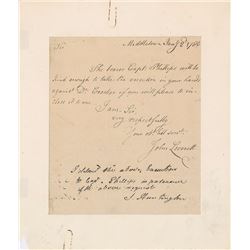 Sir
Middleton Augt 8 1786
The bearer Capt. Phillips will be
kind enough to take the execution in your hands
against Dr. if you will please to in-
close it to me.
I am Sir,
very respectfully
Your obt. servt.
John
I deliverd the above Execution
to Capt. Phillips in pursuance
of the above request
S. Huntington